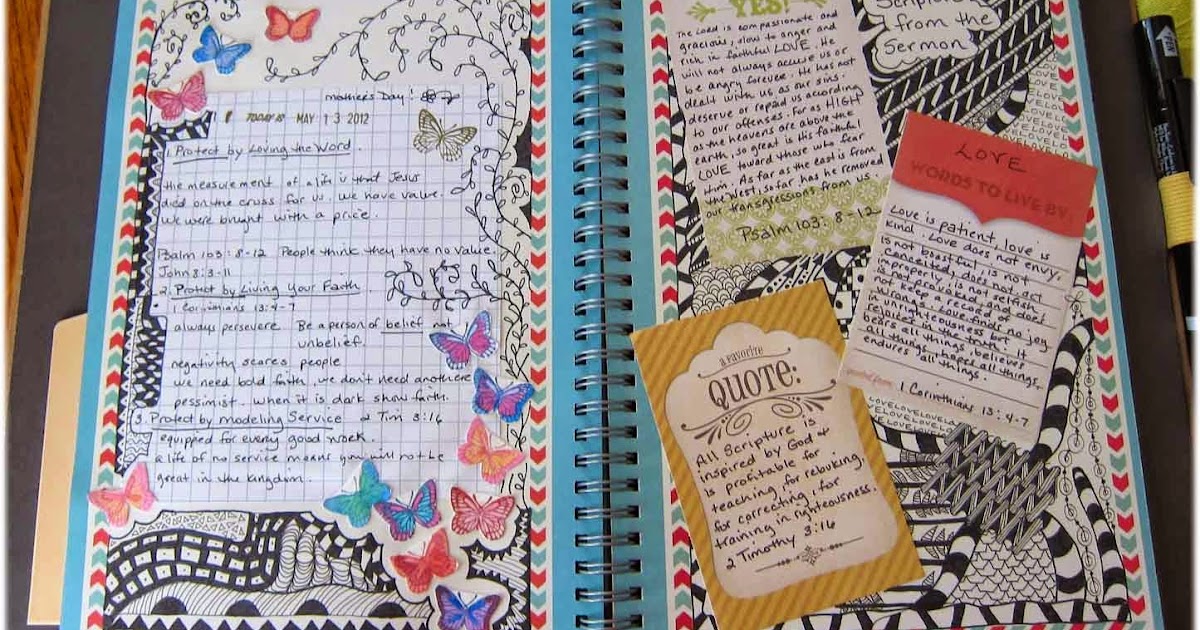 mother's Day!
TODAY IS MAY 13 2012
1. Protect by Loving the Word.
the measurement of a life is that Jesus
died on the cross for us. we have value.
we were bought with a price.
Psalm 103:8-12 People think they have no value.
John 8:3-11
2. Protect by Living Your Faith
1 Corinthians 13:4-7
always persevere Be a person of belief not
unbelief.
negativity scares people
we need bold faith. we don't need another
pessimist. when it is dark show faith.
3. Protect by modeling Service 2 Tim 3:16
equipped for every good work.
a life of no service means you will not be
great in the kingdom.
YES!
The Lord is compassionate and
gracious, slow to anger and
rich in faithful LOVE. He
will not always accuse us or
be angry forever. He has not
dealt with us as our sins
deserve or repaid us according
to our offenses. For as HIGH
as the heavens are above the
earth, so great is His faithful
LOVE toward those who fear
Him. As far as the east is from
the West, so far has he removed
our transgressions from us.
Psalm 103:8-12
Scriptures
from the
Sermon
LOVE
LOVELOVELOVE
LOVE
WORDS TO LIVE BY:
Love is patient, love is
kind. Love does not envy,
is not boastful, is not
conceited, does not act
improperly, is not selfish,
is not provoked, and does
not keep a record of
wrongs. Love finds no joy
in unrighteousness but
rejoices in the truth. It
bears all things, believes
all things, hopes all things,
endures all things.
1 Corinthians 13:4-7
LOVELOVELOVELOVE
LOVELOVELOVE
a FAVORITE
QUOTE:
All Scripture is
inspired by God &
is profitable for
teaching, for rebuking,
for correcting, for
training in righteousness.
2 Timothy 3:16